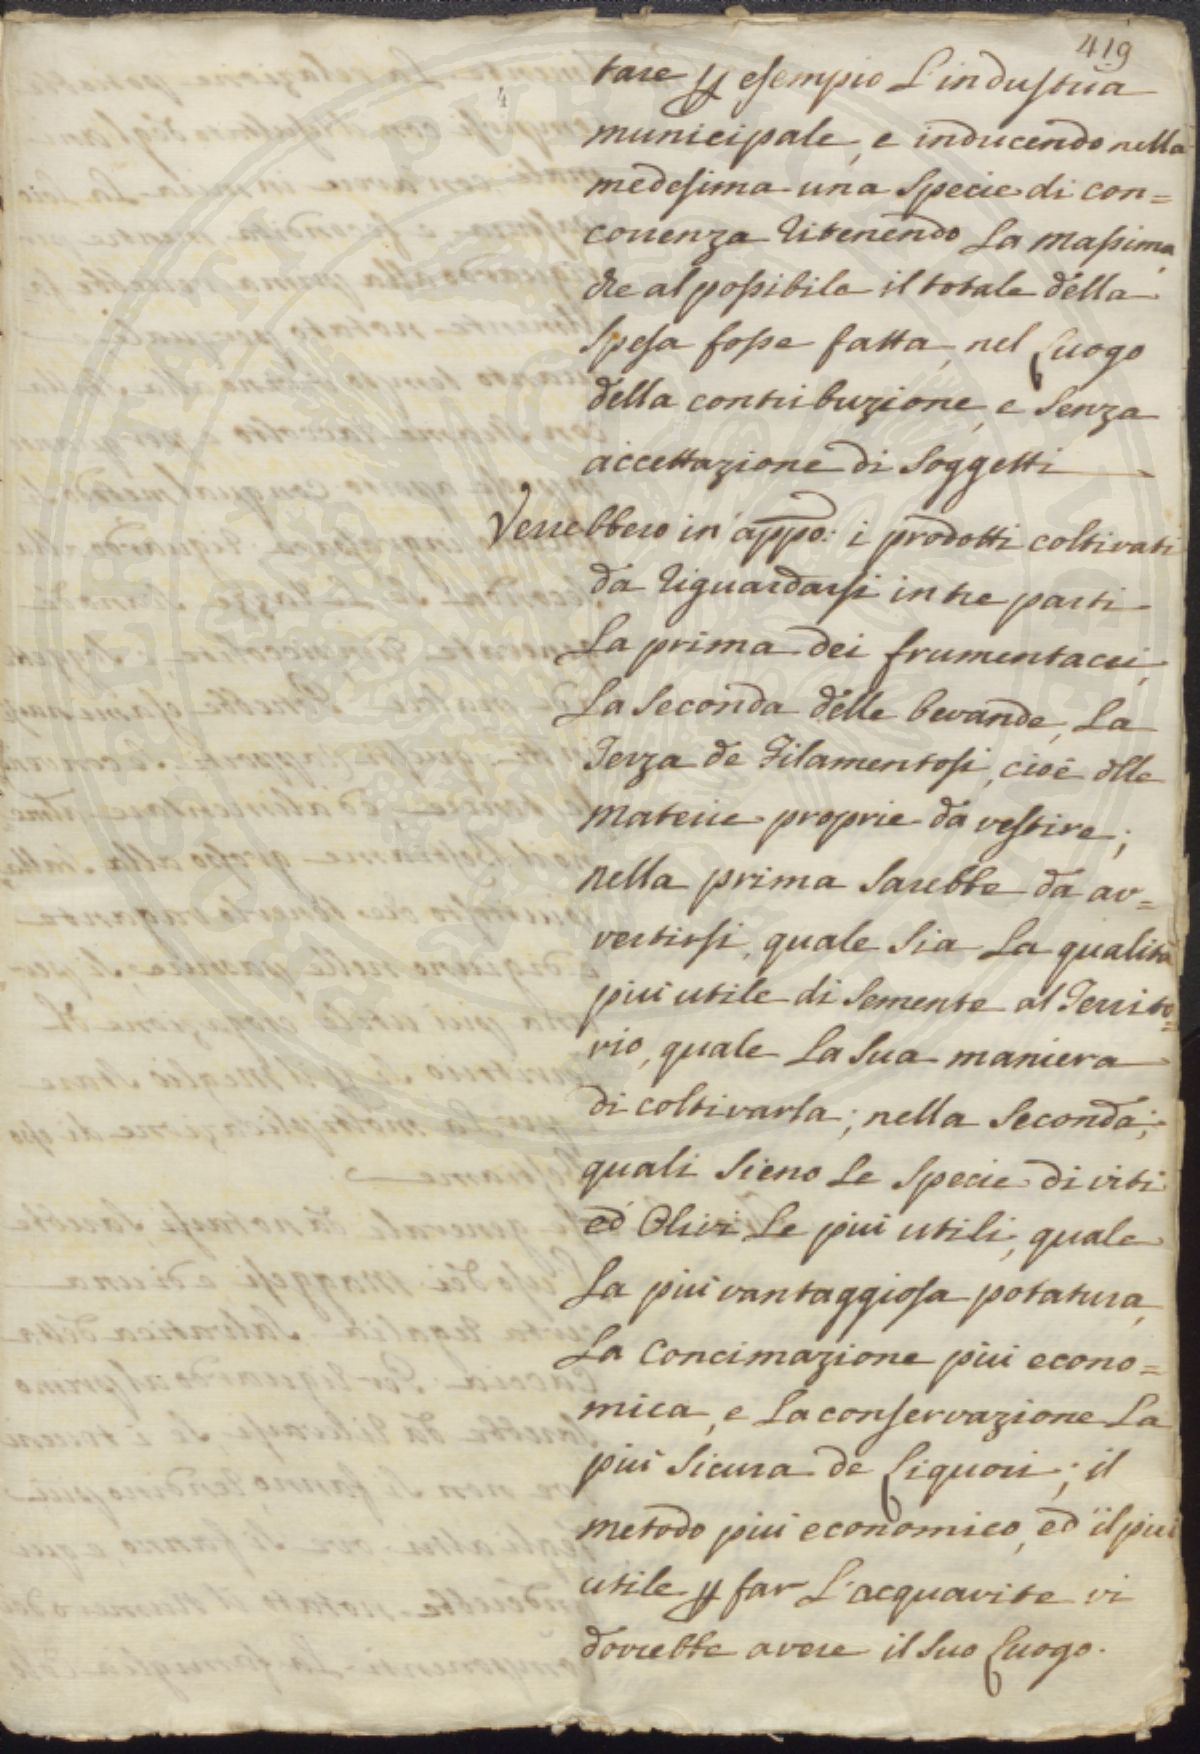 419
4
tare p esempio L'industria
municipale, e inducendo nella
medesima una Specie di con=
correnza ritenendo La massima,
che al possibile il totale della
Spesa fosse fatta nel Luogo
della contribuzione, e Senza
accettazione di Soggetti
Verrebbero in appo: i prodotti coltivati
da riguardarsi in tre parti
La prima dei frumentacei,
La Seconda delle bevande, La
Terza de Filamentosi, cioè dlle
materie proprie da vestire;
nella prima Sarebbe da av=
vertirsi, quale Sia La qualità
più utile di Semente al Territo=
rio, quale La Sua maniera
di coltivarla; nella Seconda;
quali Sieno Le Specie di viti
ed Olivi Le più utili, quale
La più vantaggiosa potatura,
La Concimazione più econo=
mica, e La conservazione La
più Sicura de Liquori; il
metodo più economico, ed il più
utile p far L'acquavite vi
dovrebbe avere il Suo Luogo.